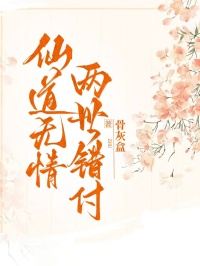 仙道无情
两世错付
骨灰盒
著